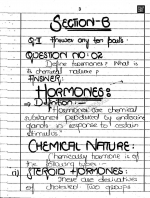 3
SECTION-B
Q.I Answer any ten parts.
QUESTION NO: 02
Define hormones? What is
its chemical nature?
ANSWER:
HORMONES:
Definition:-
Hormones are chemical
substance produced by endocrine
glands in response to certain
stimulus."
CHEMICAL NATURE:
Chemically hormone is of
the following types:-
(i) STEROID HORMONES:
These are derivatives
of cholesterol two groups